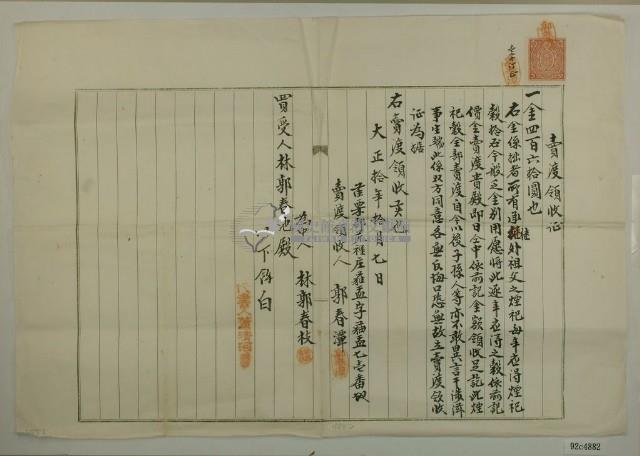 賣渡領收証
一金四百六拾圓也
右金係拙者所有承外祖父之煙祀每年應得煙祀
穀拾石今般乏金別用應將此逐年應得之穀係前記
價金賣渡貴殿即日仝中依前記金額領收足訖此煙
祀穀全部賣渡自今以後子孫人等亦不敢異言干瀆滋
事生端此係双方同意各無反悔口恐無故立賣渡領收
証為據
右賣渡領收候也
大正拾年拾月七日
賣渡領收人 郭春潭
為中人 林郭春枝
買受人林郭春池殿
92c4882